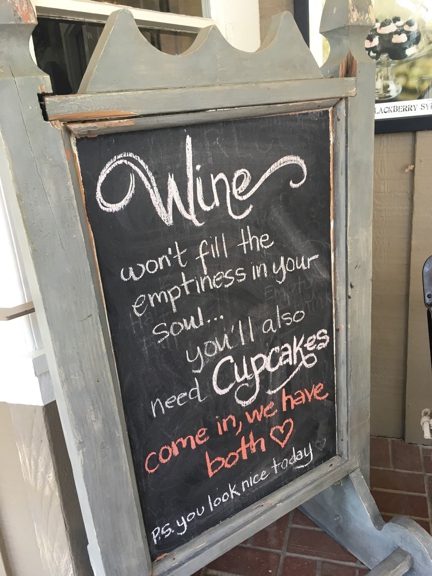 Wine
won't fill the
emptiness in your
soul...
you'll also
need Cupcakes
come in, we have
both ♡
P.S. you look nice today ♡
LACKBERRY SY